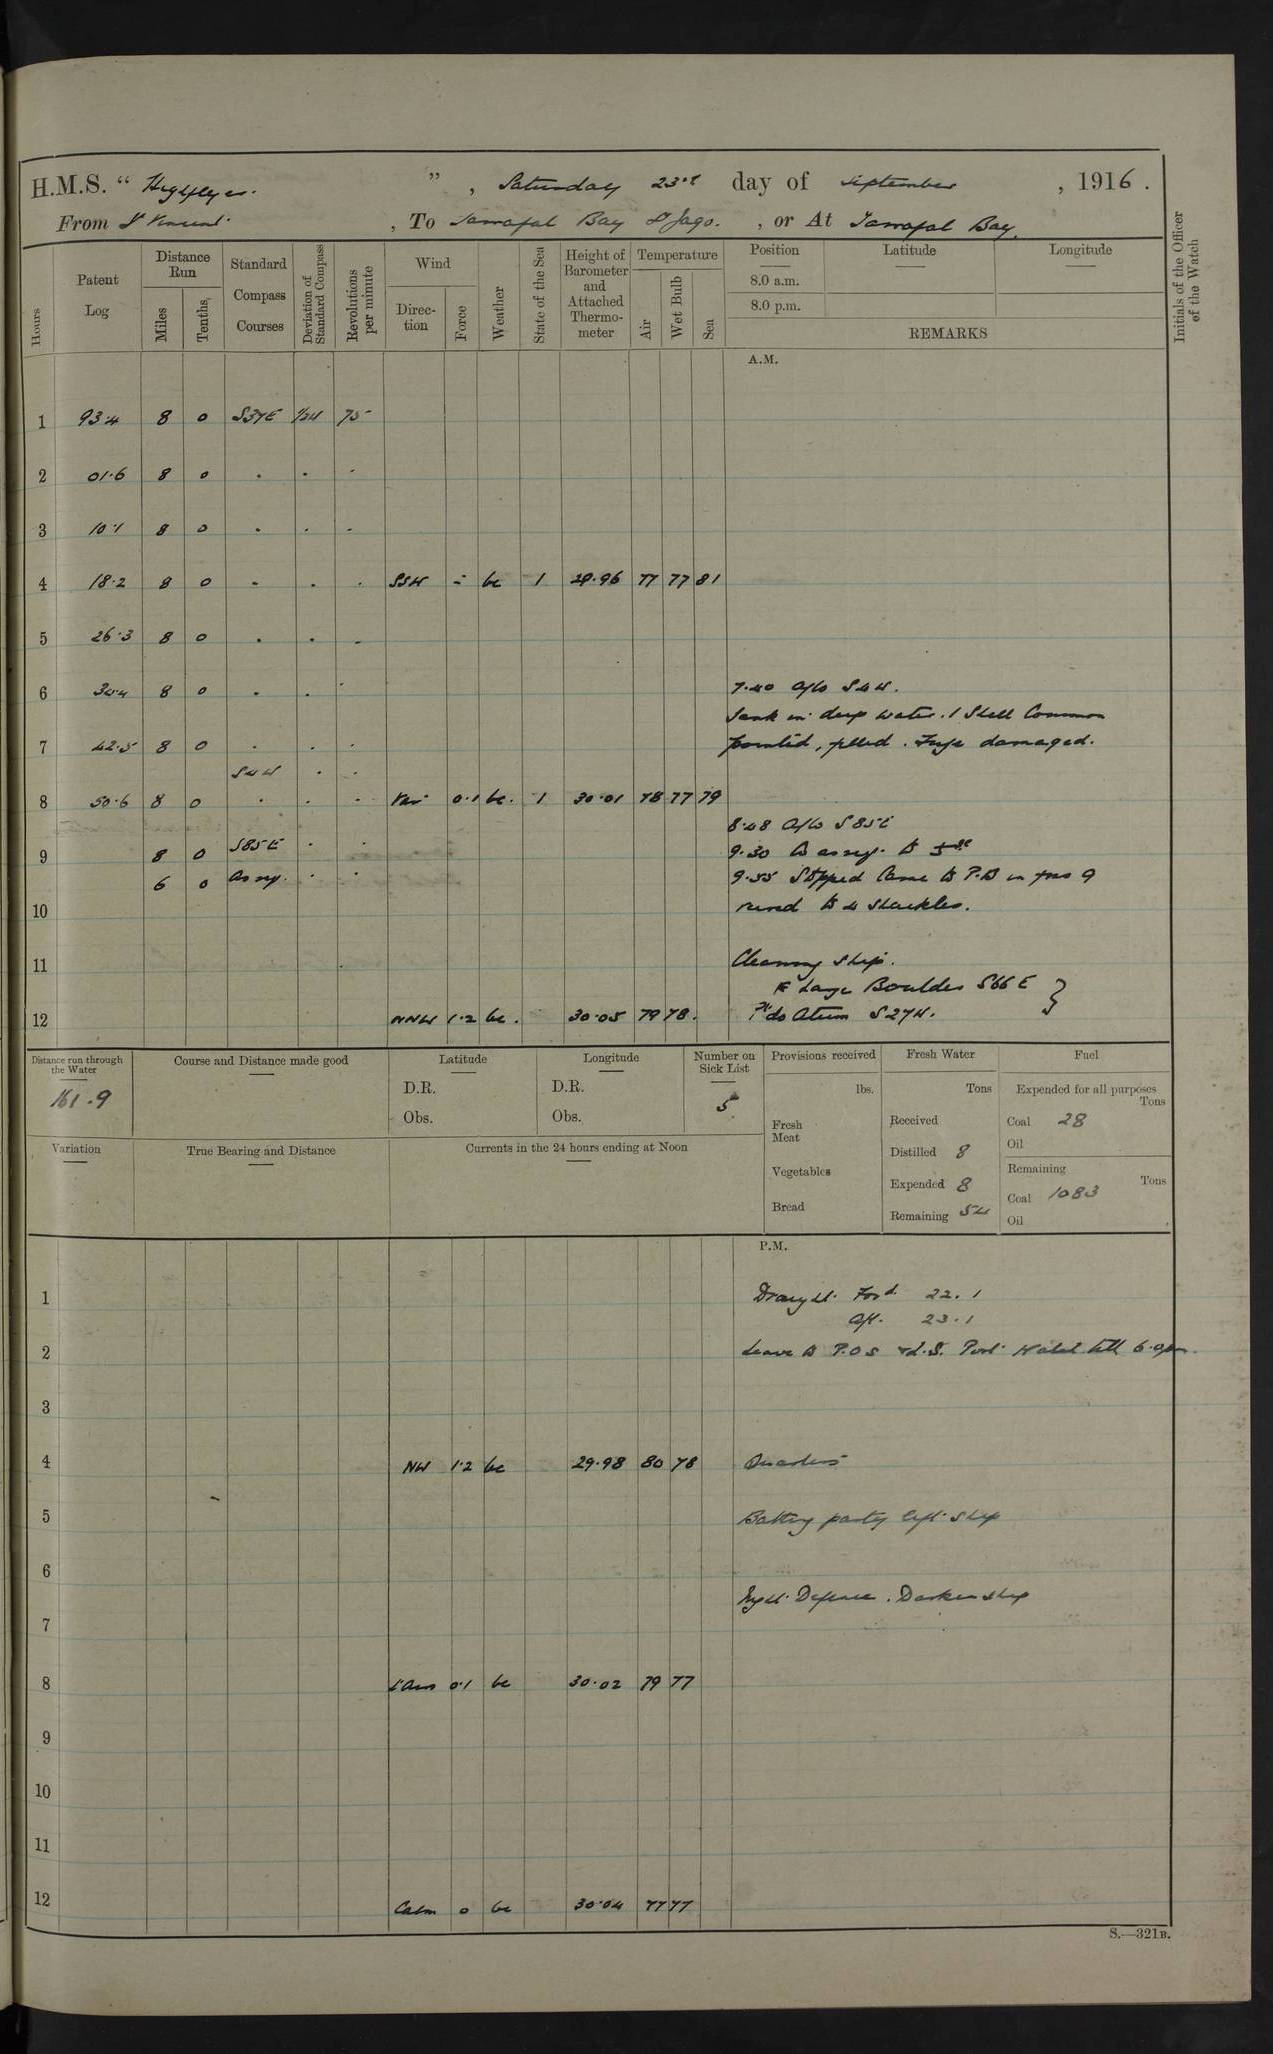 H.M.S. " Highflyer. " , Saturday 23rd day of September , 1916.
From St Vincent. , To Tarrafal Bay St Jago. , or At Tarrafal Bay.
Hours
Patent Log
Distance Run
Miles
Tenths
Standard Compass Courses
Deviation of Standard Compass
Revolutions per minute
Wind
Direction
Force
Weather
State of the Sea
Height of Barometer and Attached Thermometer
Temperature
Air
Wet Bulb
Sea
Position
Latitude
Longitude
8.0 a.m.
8.0 p.m.
REMARKS
Initials of the Officer of the Watch
A.M.
1 93.4 8 0 S37E 75
2 01.6 8 0 " " "
3 10.1 8 0 " " "
4 18.2 8 0 " " " SSW bc 1 29.96 77 77 81
5 26.3 8 0 " " "
6 34.4 8 0 " " "
7.40 a/c S4W.
Sank in deep water. 1 Shell Common
7 42.5 8 0 " " "
pointed, filled. Fuze damaged.
S4W " "
8 50.6 8 0 " " " Var 0.1 bc. 1 30.01 78 77 79
8.48 a/c S85E
9 8 0 S85E " "
9.30 Co as req. to
6 0 as req. " "
9.55 Stopped Came to P.B in 9
10
to 4 shackles.
11
Cleaning ship.
Large Boulder S66E
12 NNW 1.2 bc. 30.05 79 78.
S27W.
Distance run through the Water
161.9
Course and Distance made good
Latitude
D.R.
Obs.
Longitude
D.R.
Obs.
Number on Sick List
5
Provisions received
lbs.
Fresh Meat
Vegetables
Bread
Fresh Water
Tons
Received
Distilled 8
Expended 8
Remaining 54
Fuel
Expended for all purposes
Tons
Coal 28
Oil
Remaining
Tons
Coal 1083
Oil
Variation
True Bearing and Distance
Currents in the 24 hours ending at Noon
P.M.
1
Draught. Ford. 22.1
Aft. 23.1
2
Leave to P.Os & L.S. Port Watch till 6.0pm.
3
4 NW 1.2 bc 29.98 80 78 Quarters
5
Bathing party left ship
6
Night Defence. Darken ship
7
8 L'Airs 0.1 bc 30.02 79 77
9
10
11
12 Calm 0 bc 30.04 77 77
S.—321B.